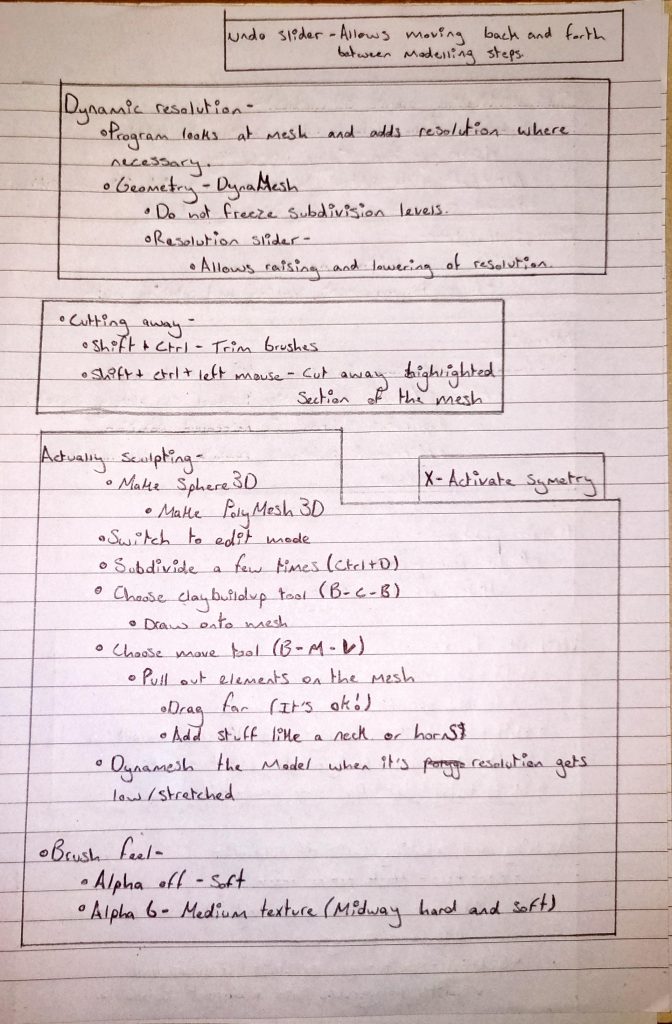 Undo slider - Allows moving back and forth
between modelling steps.
Dynamic resolution -
• Program looks at mesh and adds resolution where
necessary.
• Geometry - DynaMesh
• Do not freeze subdivision levels.
• Resolution slider -
• Allows raising and lowering of resolution.
• Cutting away -
• Shift + Ctrl - Trim brushes
• Shift + ctrl + left mouse - Cut away highlighted
Section of the mesh
Actually sculpting -
X - Activate Symetry
• Make Sphere3D
• Make PolyMesh3D
• Switch to edit mode
• Subdivide a few times (Ctrl+D)
• Choose claybuildup tool (B-C-B)
• Draw onto mesh
• Choose move tool (B-M-V)
• Pull out elements on the mesh
• Drag far (It's ok!)
• Add stuff like a neck or horns
• Dynamesh the Model when it's resolution gets
low/stretched
• Brush feel -
• Alpha off - Soft
• Alpha 6 - Medium texture (Midway hard and soft)